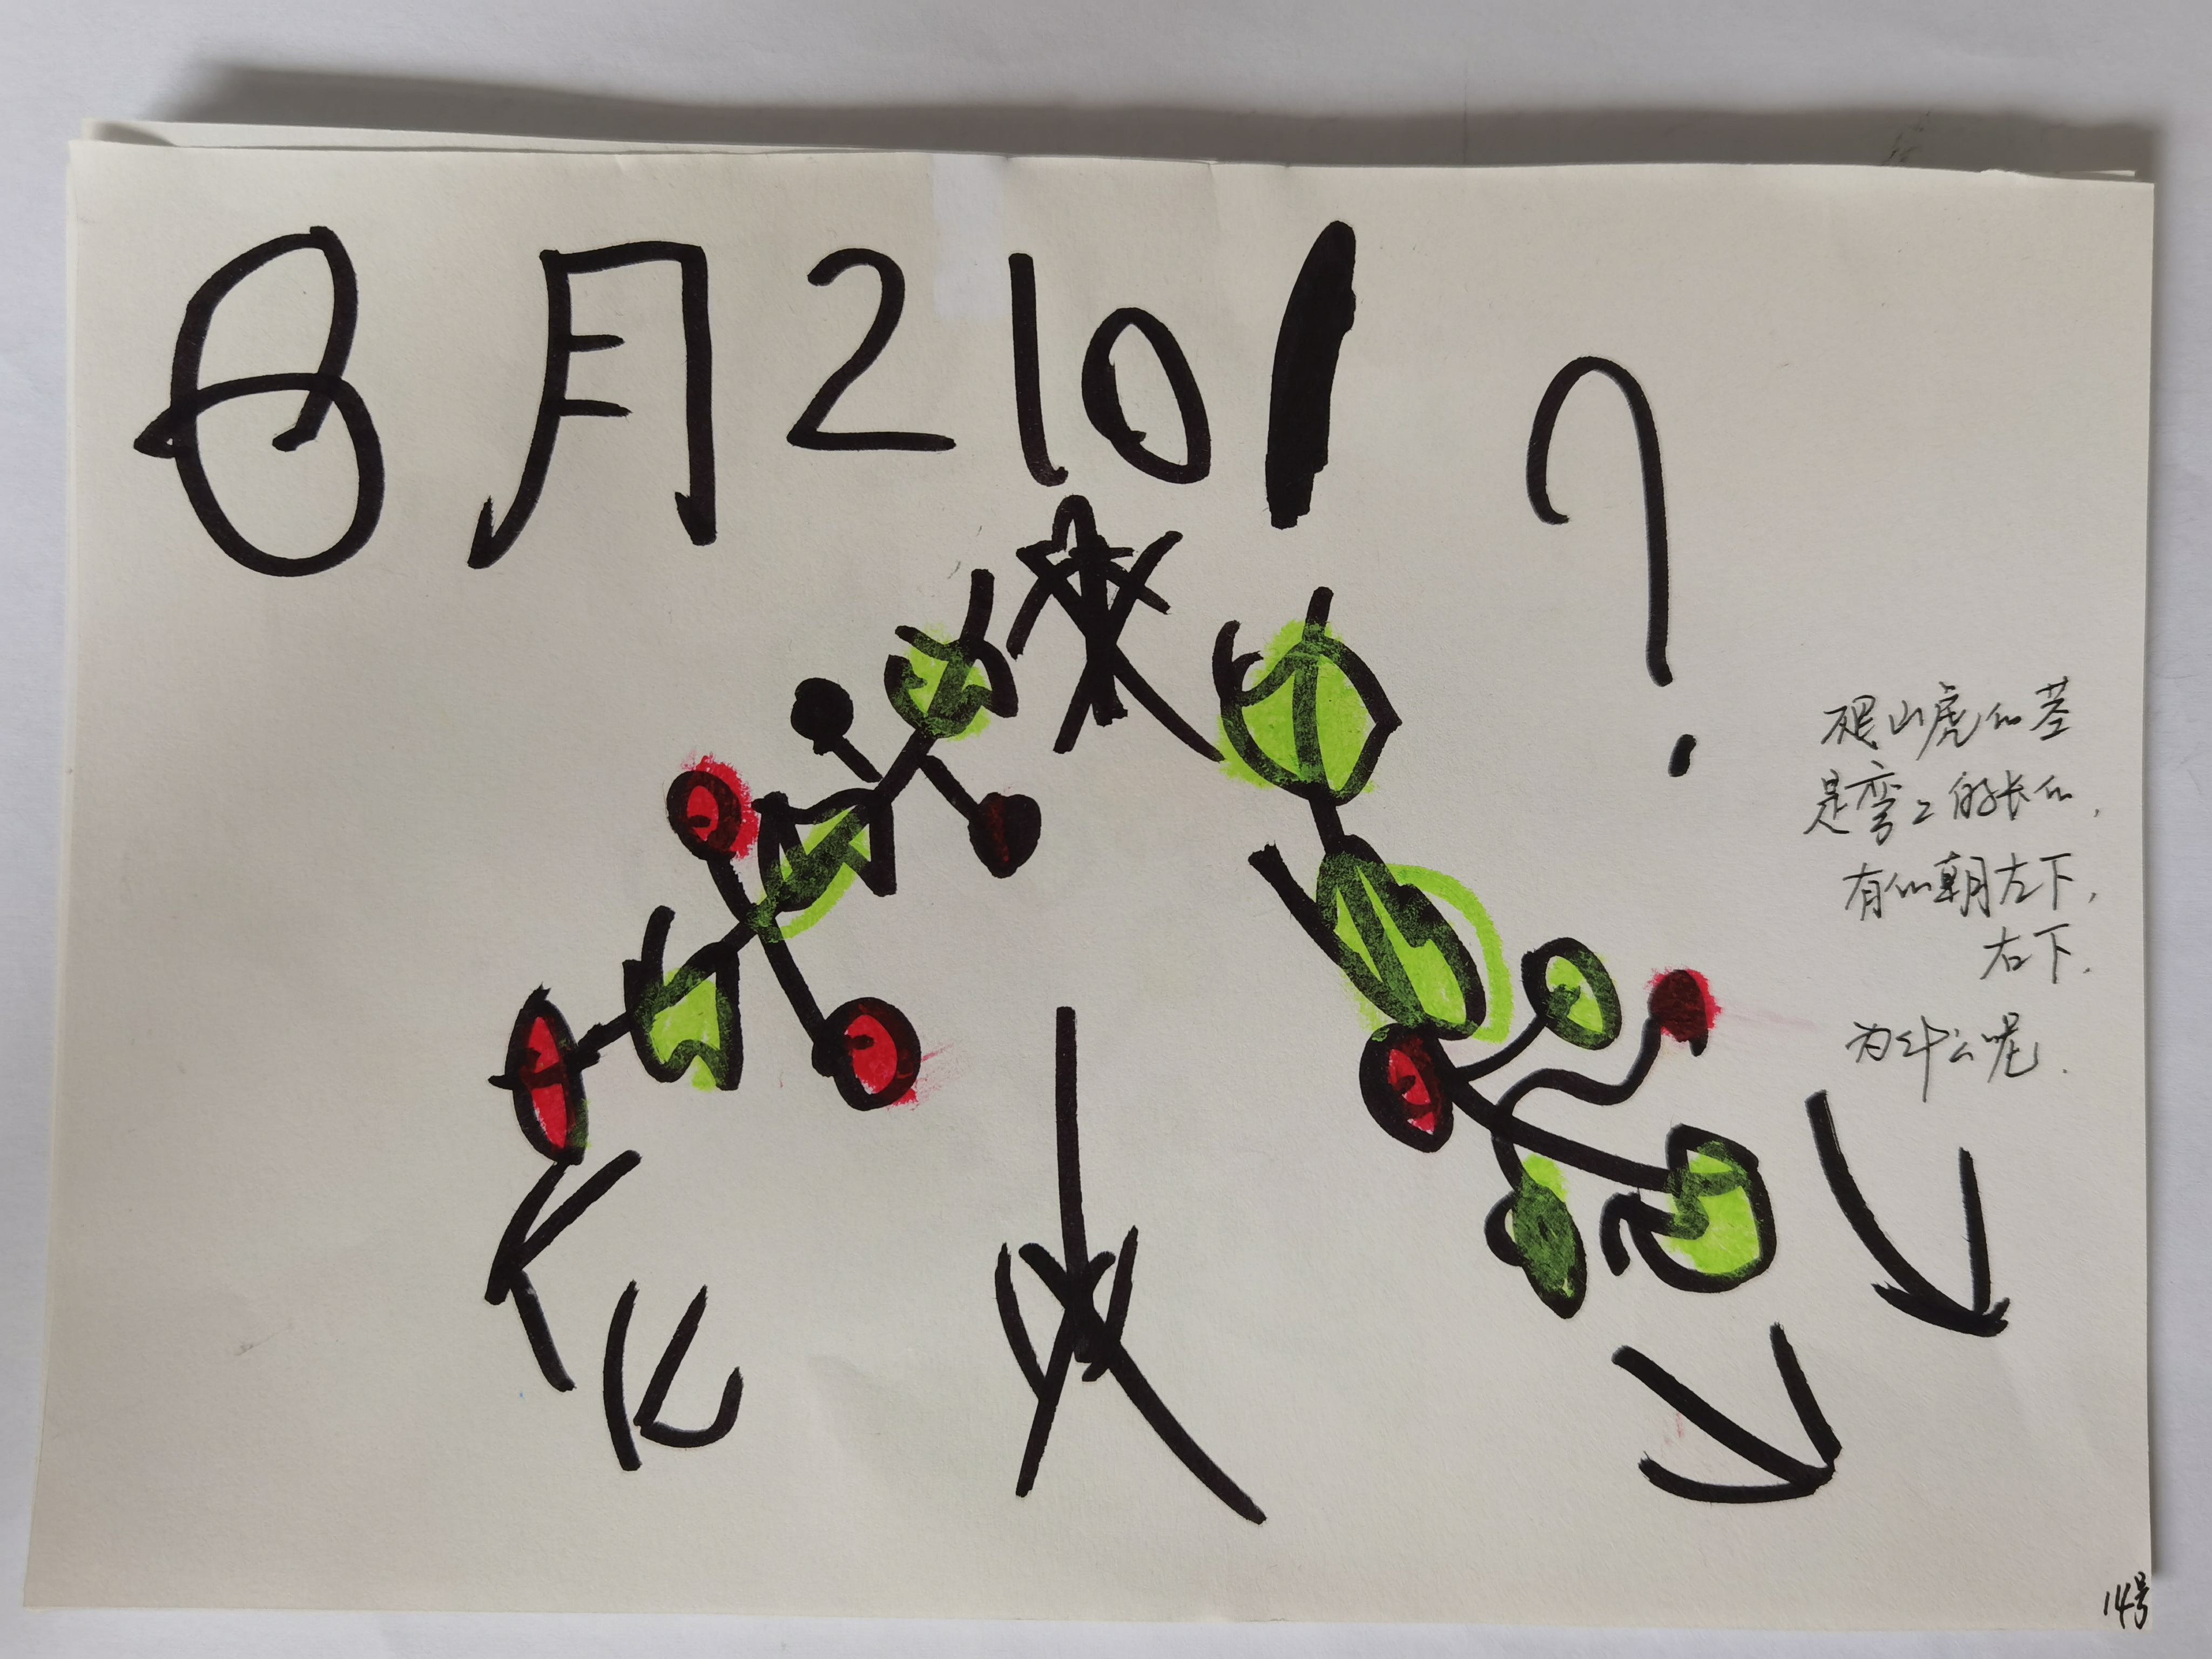 8月210 ?
爬山虎的茎
是弯弯的长的,
有的朝左下,
右下.
为什么呢.
14号